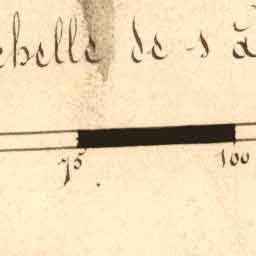 chelle de s à
75 100